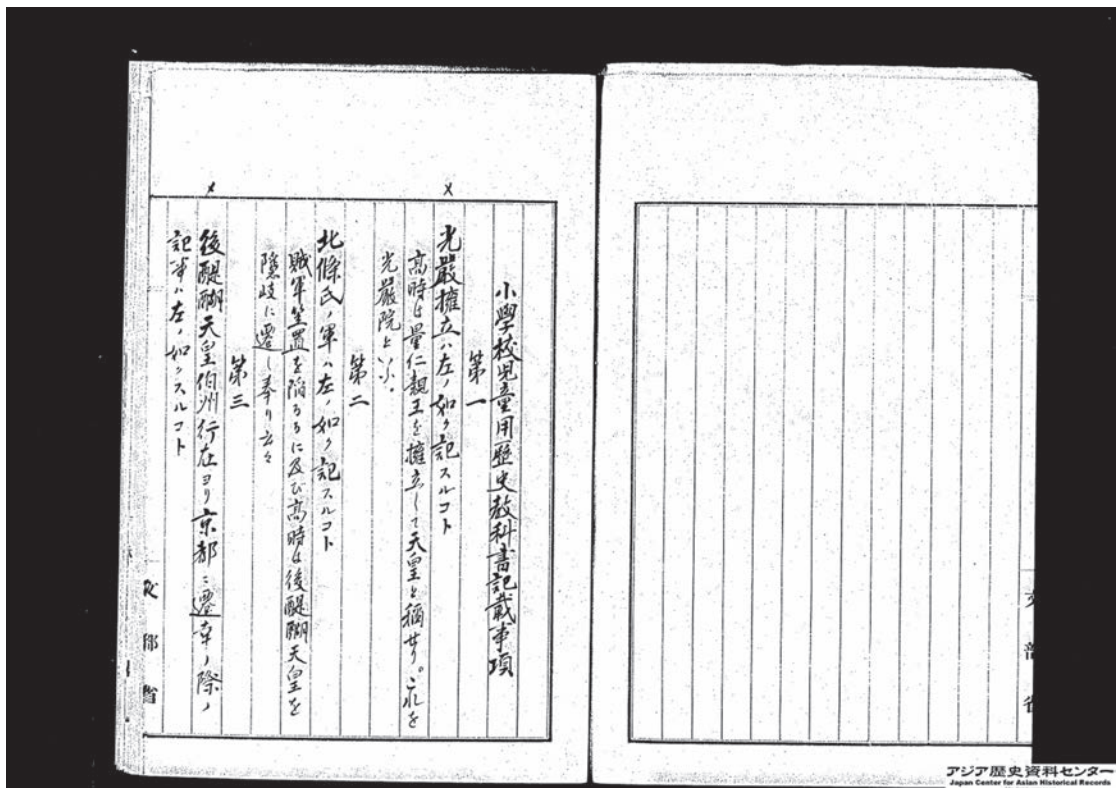 小學校児童用歴史教科書記載事項
第一
光嚴擁立ハ左ノ如ク記スルコト
高時は量仁親王を擁立して天皇と稱せり。之を
光嚴院といふ。
第二
北條氏ノ軍ハ左ノ如ク記スルコト
賊軍笠置を陥るゝに及び高時は後醍醐天皇を
隱岐に遷し奉り云々
第三
後醍醐天皇伯州行在ヨリ京都ニ遷幸ノ際ノ
記事ハ左ノ如クスルコト
文部省
文部省
アジア歴史資料センター
Japan Center for Asian Historical Records